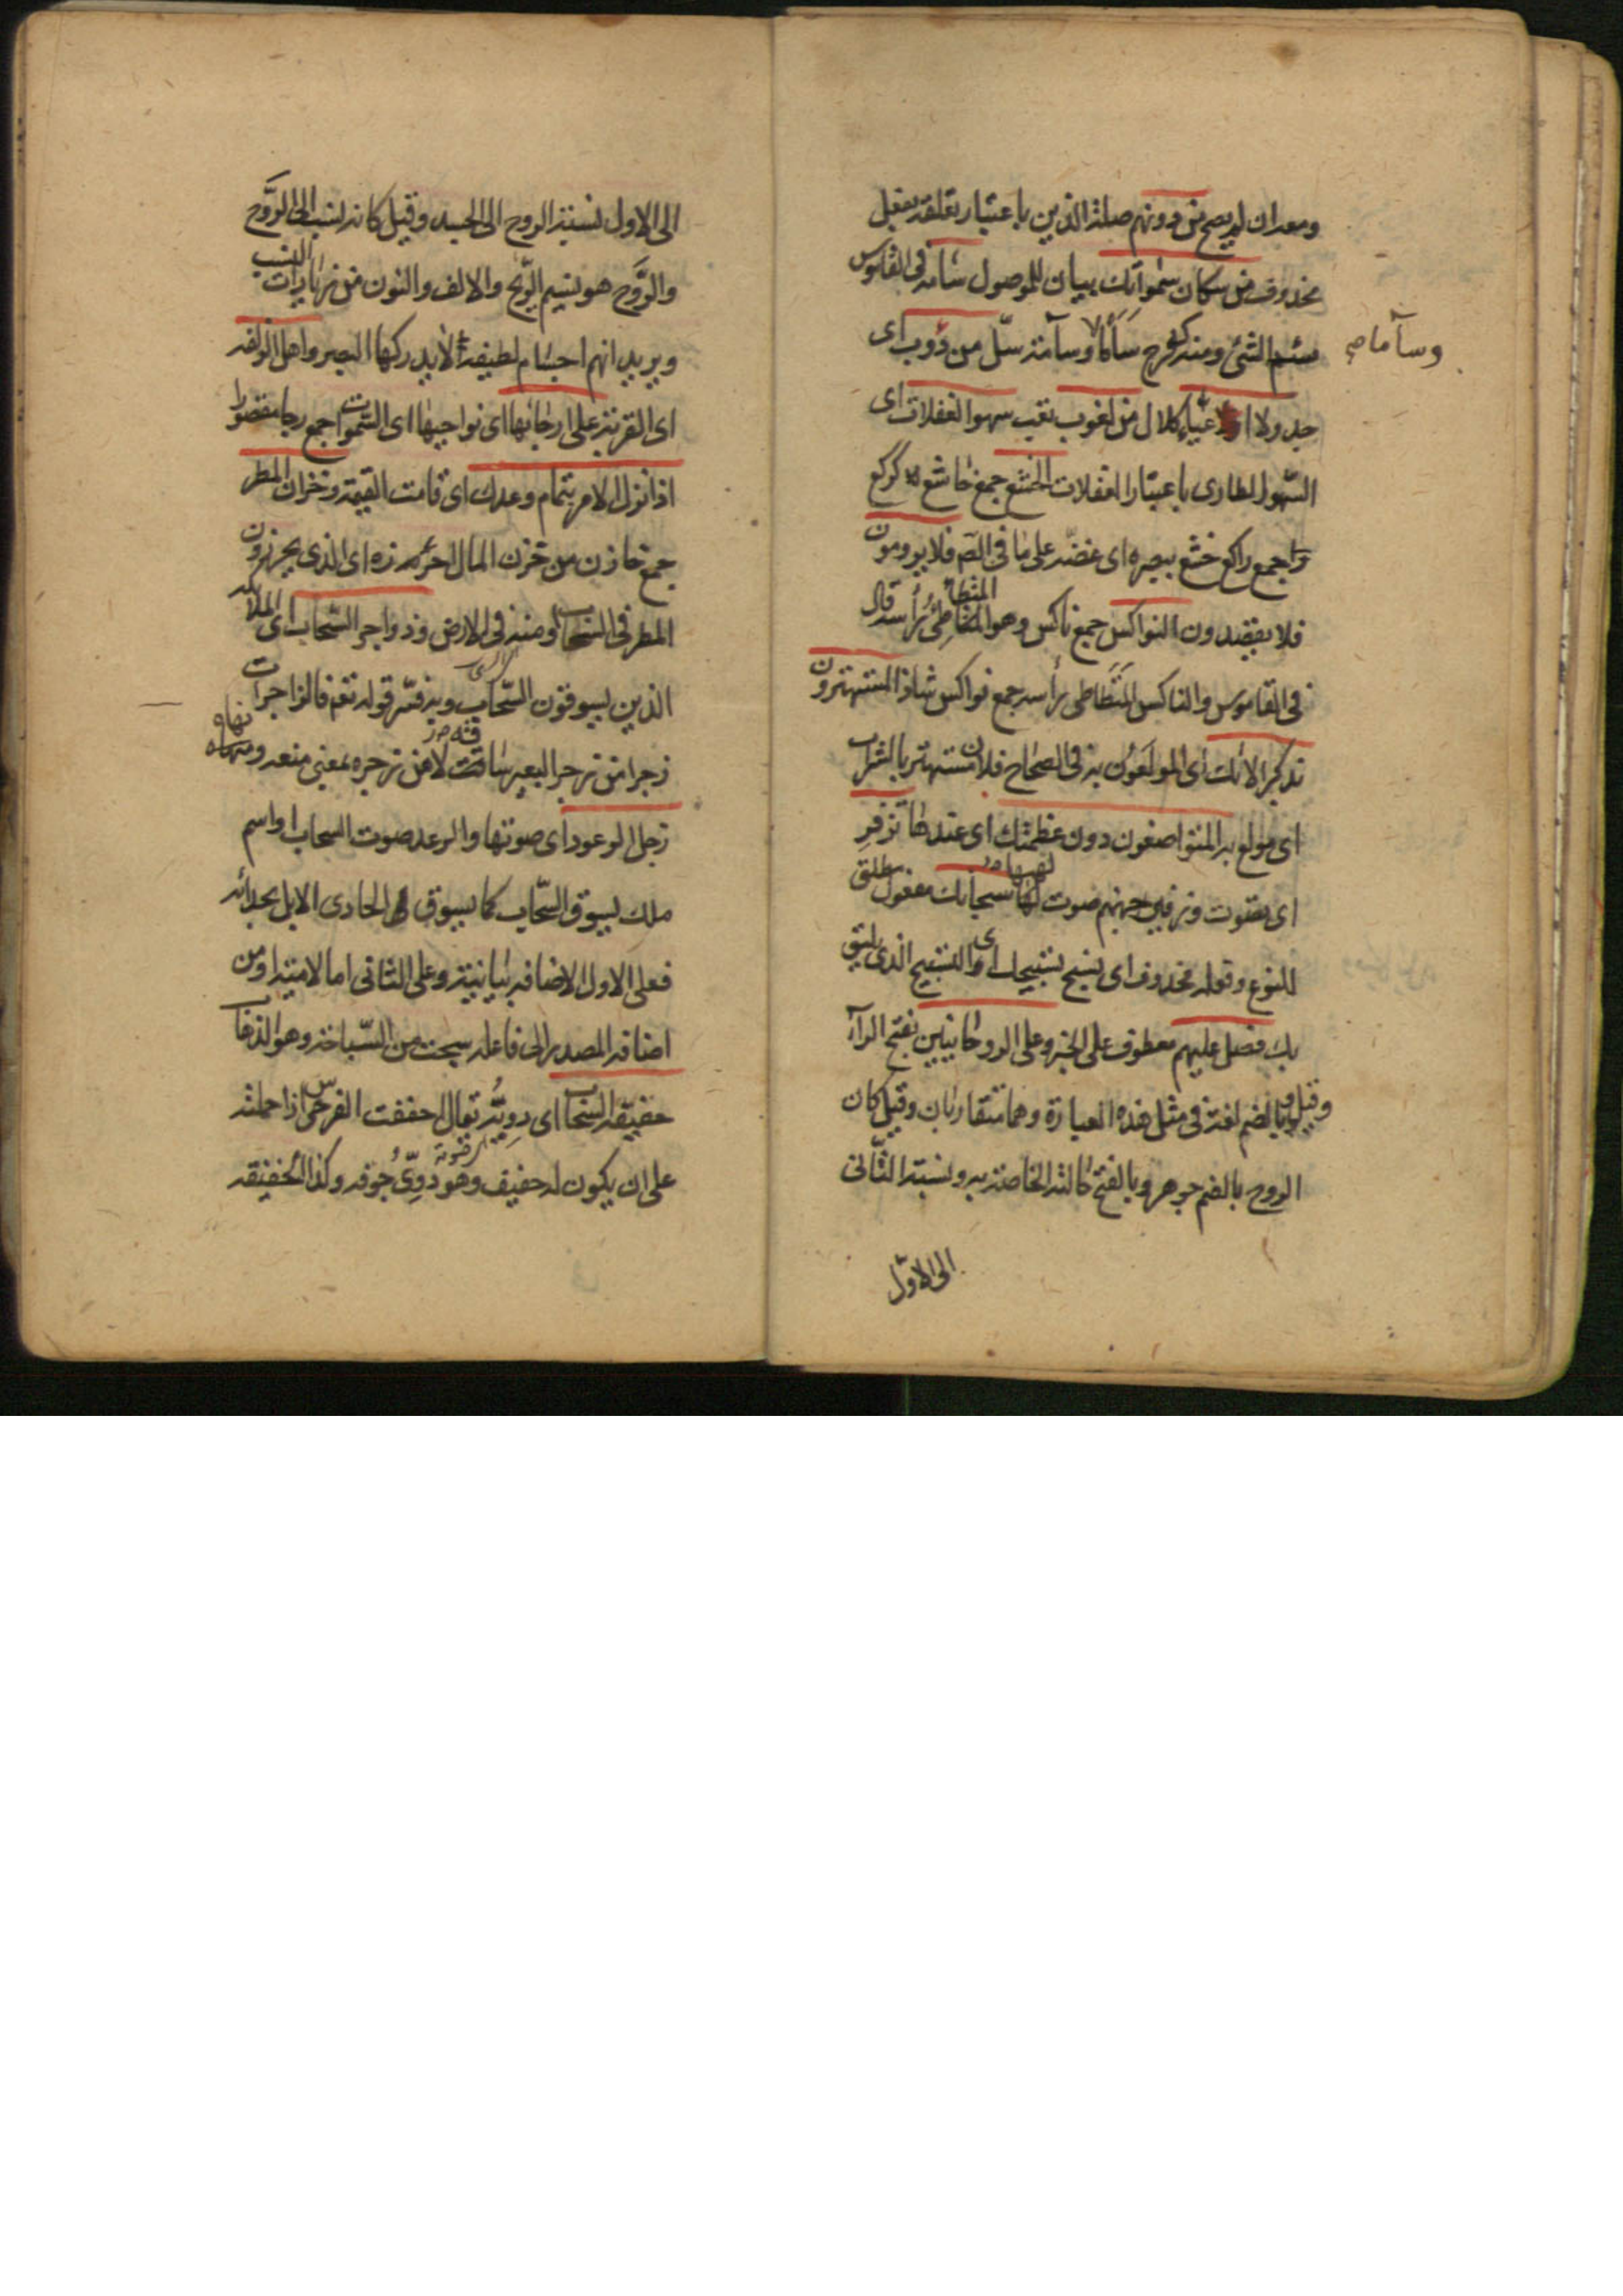 ومعدان لم يصح من دونهم صلة الذين باعتبار تعلقه بفعل
محذوف من سكان سمواتك بيان للموصول سامه في القاموس
سئم الشئ ومنه كفرح سأما وسآمة سل من دؤب اى
وسآما صح
جد ولا اعياء كلال من لغوب تعب سهو الغفلات اى
السهو الطارى باعتبار الغفلات الخشع جمع خاشع كركع
جمع راكع خشع ببصره اى غضه على ما في فلا يرومون
فلا يقصدون النواكس جمع ناكس وهو المتطأطئ رأسه قال
في القاموس والناكس المتطاطى رأسه جمع نواكس شاذ المستهترون
تذكر الائك اى المولعون به في الصحاح فلان مستهتر بالشراب
اى مولع به المتواضعون دون عظمتك اى عندها تزفر
اى تصوت وزفير جهنم صوت لهبها سبحانك مفعول مطلق
للنوع وقوله محذوف اى نسبح تسبيحك اى التسبيح الذى يليق
بك فصل عليهم معطوف على الخبر وعلى الروحانيين بفتح الراء
وقيل وبالضم لغة في مثل هذه العبارة وهما متقاربان وقيل كان
الروح بالضم جوهر وبالفتح حالته الخاصة به ونسبة الثانى
الى الاول
الى الاول نسبة الروح الى الجسد وقيل كانه نسب الى الروح
والروح هو نسيم الريح والالف والنون من زيادات النسب
ويريد انهم اجسام لطيفة لا يدركها البصر واهل الزلفة
اى القربة على ارجائها اى نواحيها اى السموات جمع رجا مقصورا
اذا نزل الامر بتمام وعدك اى قامت القيمة وخزان المطر
جمع خازن من خزن المال احرزه اى الذى يحرزون
المطر في السحاب او منه في الارض وزواجر السحاب اى الملائكة
الذين يسوقون السحاب وبه فسر قوله تعم فالزاجرات
زجرا من زجر البعير ساقه لا من زجره بمعنى منعه ونهاه
زجل الرعود اى صوتها والرعد صوت السحاب او اسم
ملك يسوق السحاب كما يسوق الحادى الابل بحدائه
فعلى الاول الاضافه بيانية وعلى الثانى اما لامية او من
اضافه المصدر الى فاعله سبحت من السباحة وهو الذهاب
حفيفة السحاب اى دويه يقال حففت الفرس اذا حملته
على ان يكون له حفيف وهو دوى جوفه وكذا الخفيقة